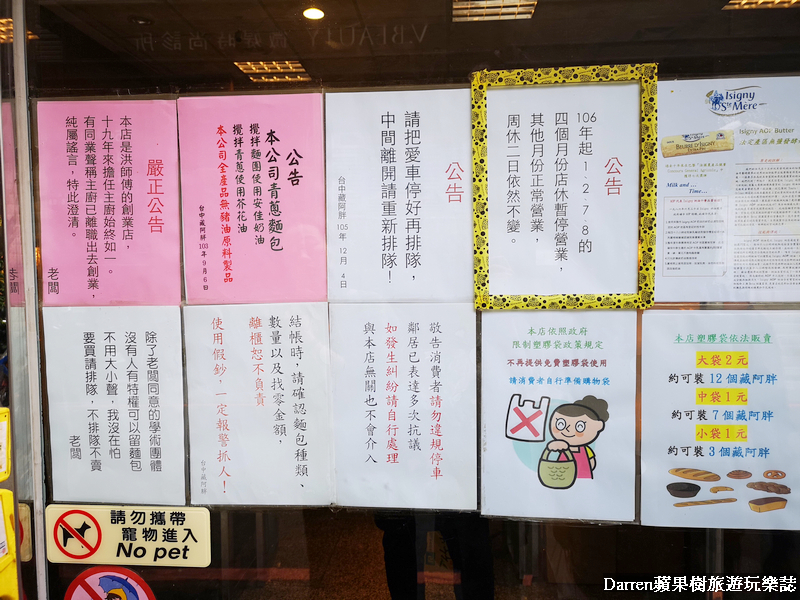 V.BEAUTY 微整時尚診所
嚴正公告
本店是洪師傅的創業店，
十九年來擔任主廚始終如一。
有同業聲稱主廚已離職出去創業，
純屬謠言，特此澄清。
老闆
公告
本公司青蔥麵包
攪拌麵團使用安佳奶油
攪拌青蔥使用芥花油
本公司全產品無豬油原料製品
台中藏阿胖 103年9月6日
公告
請把愛車停好再排隊，
中間離開請重新排隊！
台中藏阿胖 105年12月4日
公告
106年起1、2、7、8的
四個月份店休暫停營業，
其他月份正常營業，
周休二日依然不變。
Isigny
Ste Mère
Isigny AOC Butter
Milk and ...
Time...
老闆
除了老闆同意的學術團體
沒有人有特權可以留麵包
不用大小聲，我沒在怕
要買請排隊，不排隊不賣
老闆
結帳時，請確認麵包種類、
數量以及找零金額，
離櫃恕不負責
使用假鈔，一定報警抓人！
台中藏阿胖
敬告消費者請勿違規停車
鄰居已表達多次抗議
如發生糾紛請自行處理
與本店無關也不會介入
本店依照政府
限制塑膠袋政策規定
不再提供免費塑膠袋使用
請消費者自行準備購物袋
本店塑膠袋依法販賣
大袋2元
約可裝12個藏阿胖
中袋1元
約可裝7個藏阿胖
小袋1元
約可裝3個藏阿胖
請勿攜帶
寵物進入
No pet
Darren蘋果樹旅遊玩樂誌